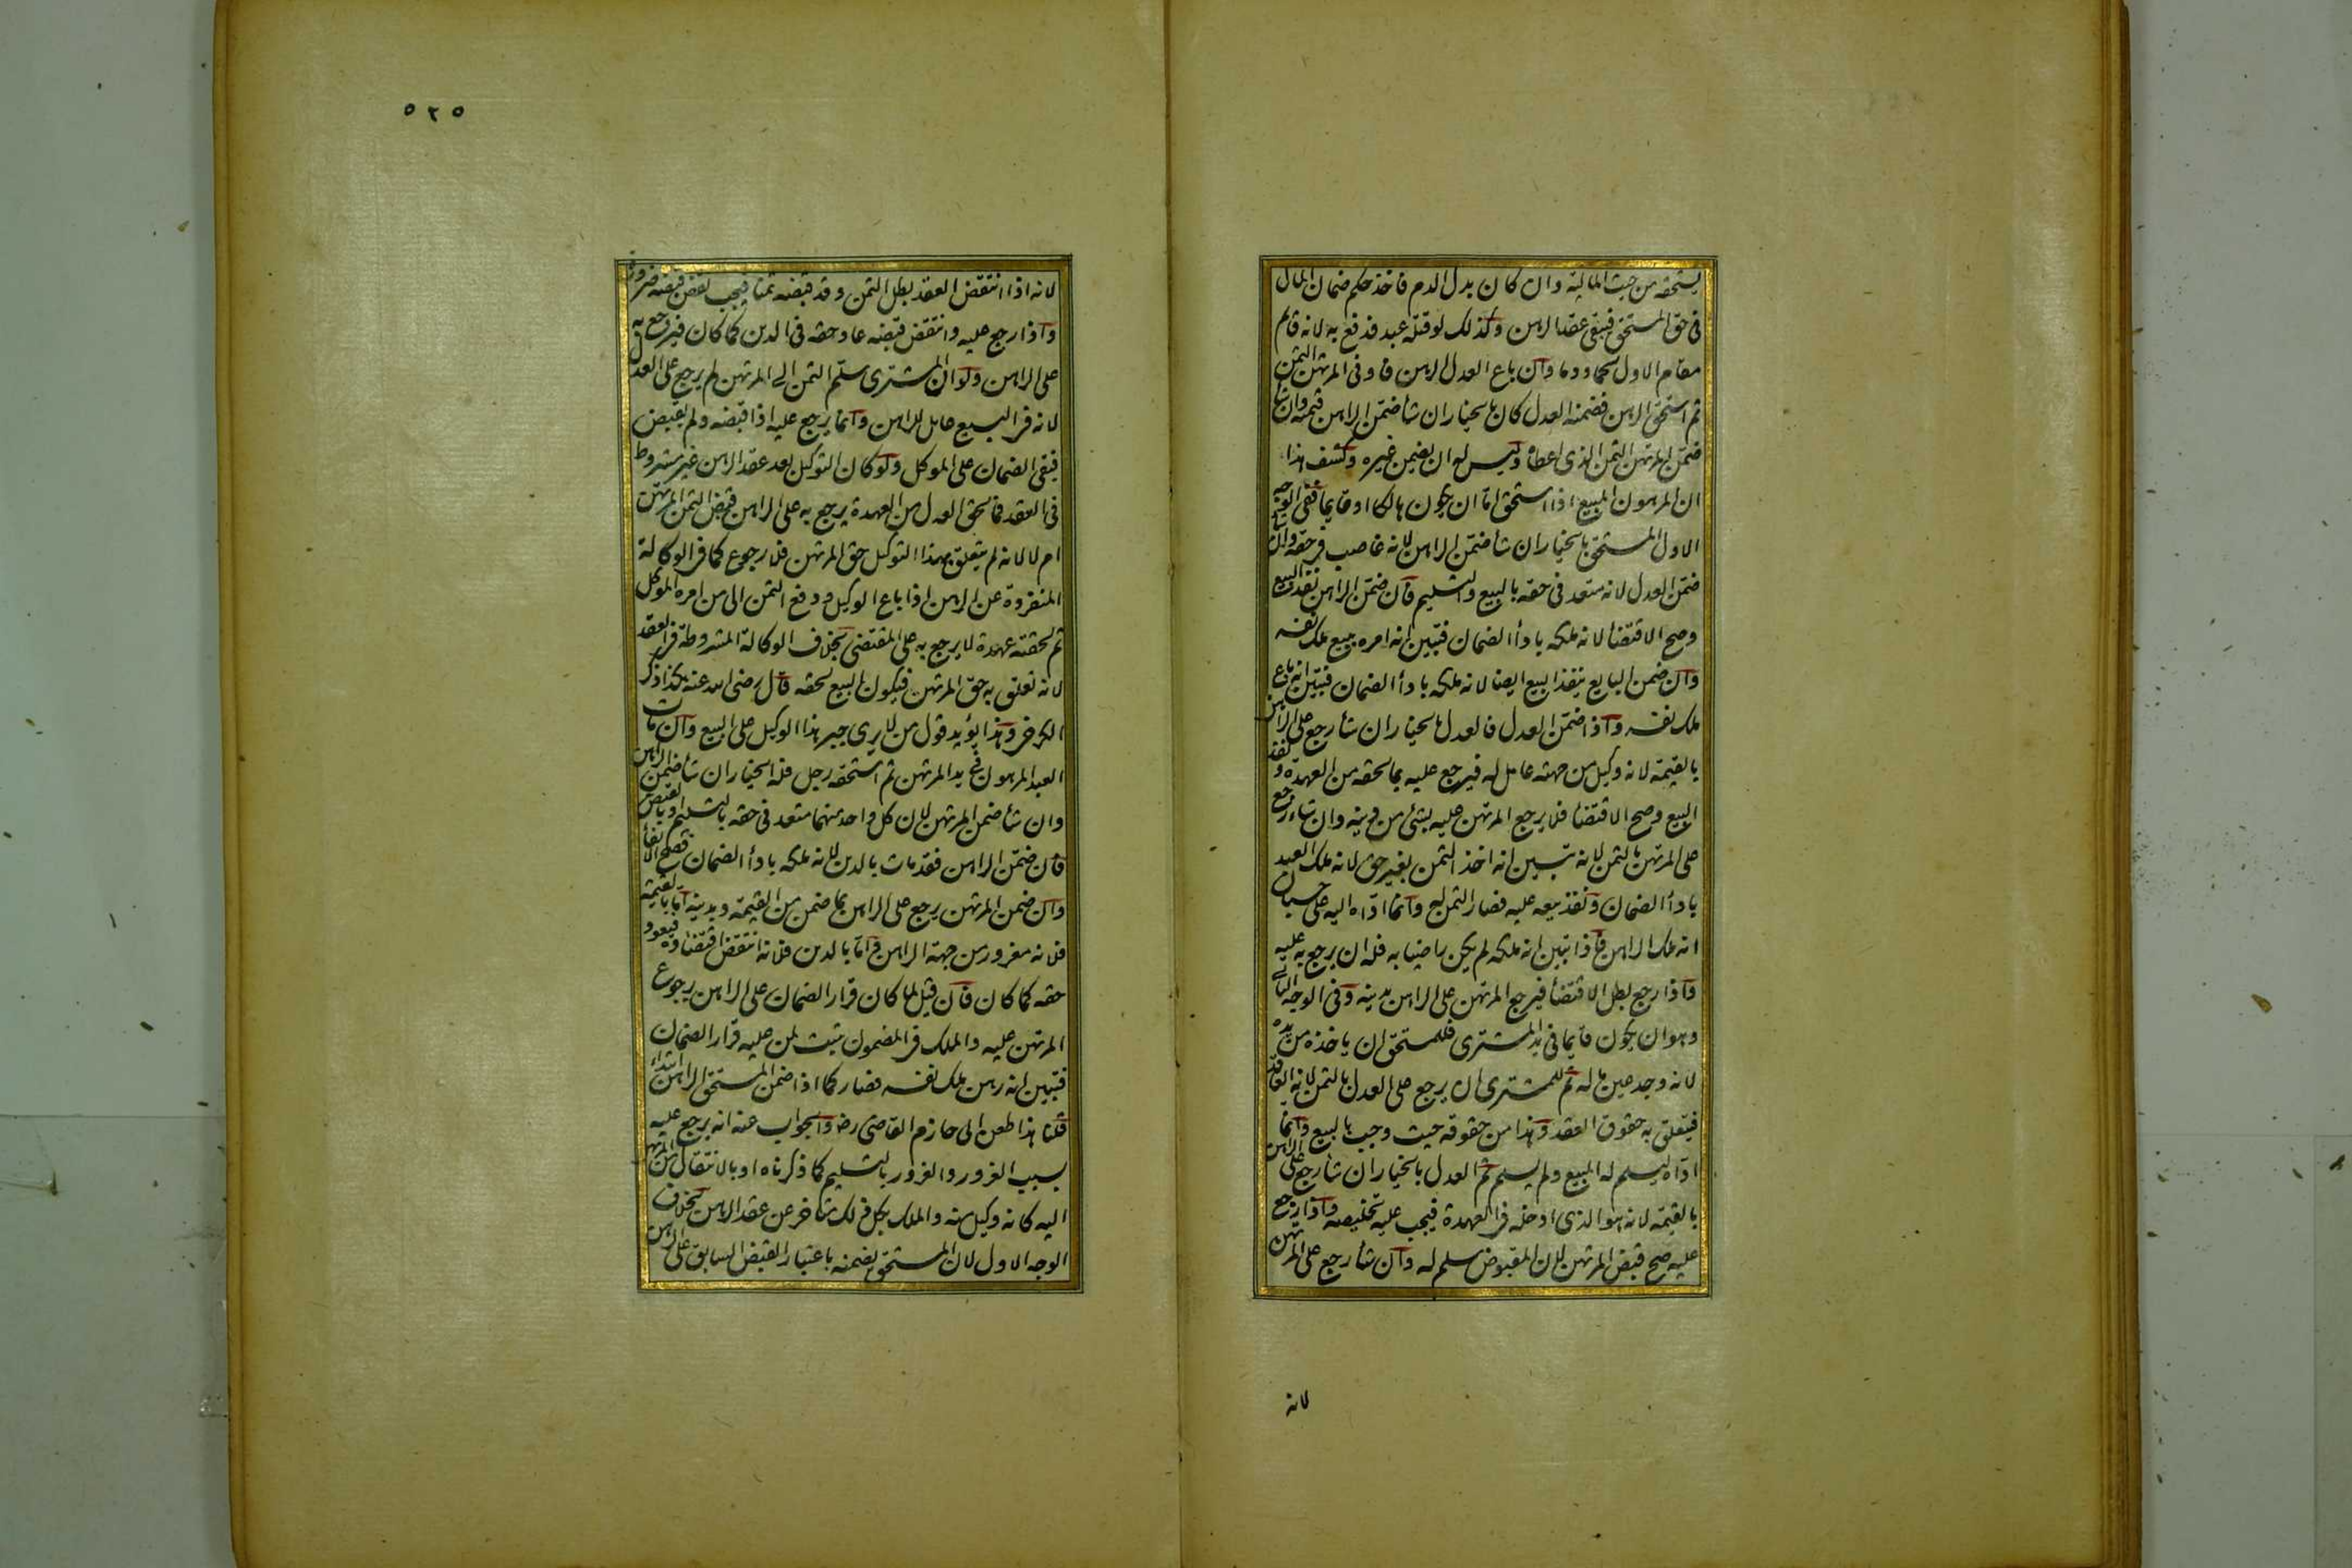 يستحقه من حيث المالية وان كان بدل الدم فاخذ حكم ضمان المال
فى حق المستحق فبقى عقد الرهن وكذلك لو قتله عبد فدفع به لانه قائم
مقام الاول لحما ودما وان باع العدل الرهن فاوفى المرتهن الثمن
ثم استحق الرهن فضمنه العدل كان بالخيار ان شاء ضمّن الراهن قيمته وان شاء
ضمّن المرتهن الثمن الذى اعطاه وليس له ان يضمن غيره وكشف هذا
ان المرهون المبيع اذا استحق امّا ان يكون هالكا او قايما ففى الوجه
الاول المستحق بالخيار ان شاء ضمّن الراهن لانه غاصب فى حقه وان شاء
ضمّن العدل لانه متعد فى حقه بالبيع والتسليم فان ضمّن الراهن نفذ البيع
وصح الاقتضا لانه ملكه بادأ الضمان فتبيّن انه امره ببيع ملك نفسه
وان ضمن البايع ينفذ البيع ايضا لانه ملكه بادأ الضمان فتبيّن انه باع
ملك نفسه واذا ضمّن العدل فالعدل بالخيار ان شاء رجع على الراهن
بالقيمة لانه وكيل من جهته عامل له فيرجع عليه بما لحقه من العهدة ونفذ
البيع وصح الاقتضا فلا يرجع المرتهن عليه بشئ من دينه وان شاء رجع
على المرتهن بالثمن لانه تبيين انه اخذ الثمن بغير حق لانه ملك العبد
بادأ الضمان ونفذ بيعه عليه فصار الثمن له وانما ادّاه اليه على حسبان
انه ملك الراهن فاذا تبين انه ملكه لم يكن راضيا به فله ان يرجع به عليه
واذا رجع بطل الاقتضأ فيرجع المرتهن على الراهن بدينه وفى الوجه الثانى
وهو ان يكون قايما فى يد المشترى فللمستحق ان ياخذه من يده
لانه وجد عين ماله ثم للمشترى ان يرجع على العدل بالثمن لانه العاقد
فيتعلق به حقوق العقد وهذا من حقوقه حيث وجب بالبيع وانما
ادّاه ليسلم له المبيع ولم يسلم ثم العدل بالخيار ان شاء رجع على الراهن
بالقيمة لانه هو الذى ادخله فى العهدة فيجب عليه تخليصه واذا رجع
عليه صح قبض المرتهن لان المقبوض سلم له وان شاء رجع على المرتهن
لانه
٥٢٥
لانه اذا انتقض العقد بطل الثمن وقد قبضه ثمنا فيجب نقض قبضه ضرورة
واذا رجع عليه وانتقض قبضه عاد حقه فى الدين كما كان فيرجع به
على الراهن ولو ان المشترى سلّم الثمن الى المرتهن لم يرجع على العدل
لانه فى البيع عامل للراهن وانما يرجع عليه اذا قبضه ولم يقبض
فبقى الضمان على الموكل ولو كان التوكيل بعد عقد الرهن غير مشروط
فى العقد فما لحق العدل من العهدة يرجع به على الراهن قبض الثمن المرتهن
ام لا لانه لم يتعلق بهذا التوكيل حق المرتهن فلا رجوع كما فى الوكالة
المنفردة عن الرهن اذا باع الوكيل ودفع الثمن الى من امره الموكل
ثم لحقته عهدة لا يرجع به على المقتضى بخلاف الوكالة المشروطة فى العقد
لانه تعلق به حق المرتهن فيكون البيع لحقه قال رضى الله عنه هكذا ذكر
الكرخى وهذا يؤيد قول من لا يرى جبر هذا الوكيل على البيع وان مات
العبد المرهون فى يد المرتهن ثم استحقه رجل فله الخيار ان شاء ضمن الراهن
وان شاء ضمن المرتهن لان كل واحد منهما متعد فى حقه بالتسليم او بالقبض
فان ضمّن الراهن فقد مات بالدين لانه ملكه بادأ الضمان فصح الايفاء
وان ضمن المرتهن يرجع على الراهن بما ضمن من القيمة وبدينه امّا بالقيمة
فلانه مغرور من جهة الراهن وامّا بالدين فلانه انتقض اقتضاؤه فيعود
حقه كما كان فان قيل لما كان قرار الضمان على الراهن برجوع
المرتهن عليه والملك فى المضمون يثبت لمن عليه قرار الضمان
فتبيين انه رهن ملك نفسه فصار كما اذا ضمن المستحق الراهن ابتداء
قلنا هذا طعن ابى حازم القاضى رض والجواب عنه انه يرجع عليه
بسبب الغرور والغرور بالتسليم كما ذكرناه او بالانتقال من المرتهن
اليه كانه وكيل عنه والملك بكل ذلك متاخر عن عقد الرهن بخلاف
الوجه الاول لان المستحق يضمنه باعتبار القبض السابق على الرهن